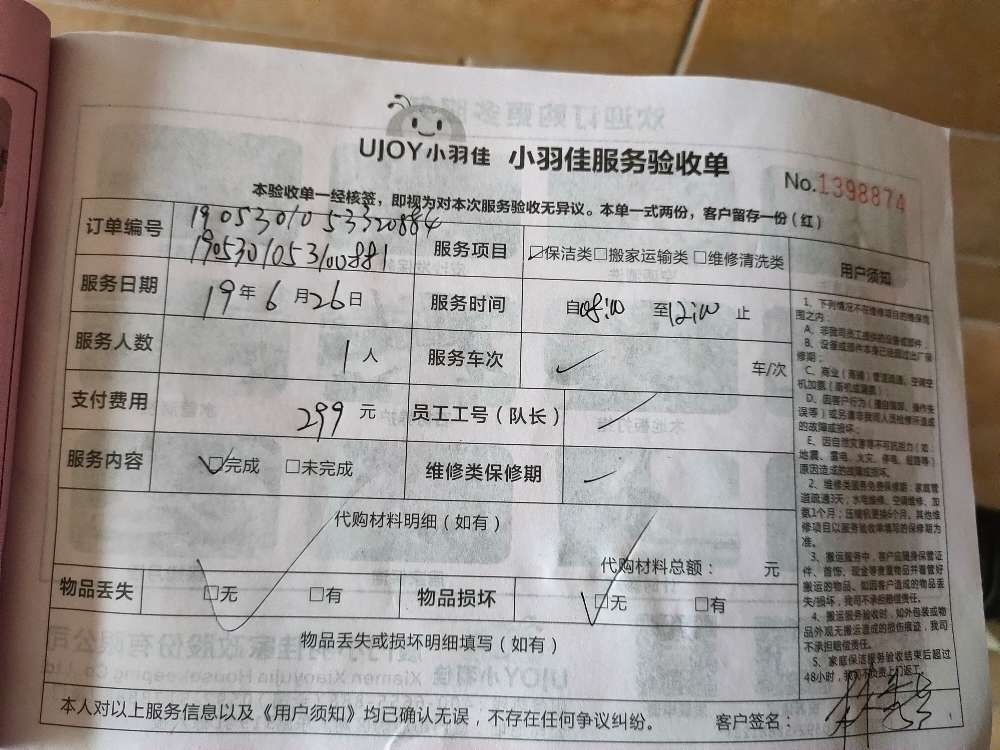 UJOY小羽佳 小羽佳服务验收单
No.1398874
本验收单一经核签，即视为对本次服务验收无异议。本单一式两份，客户留存一份（红）
订单编号
1905301053320884
1905301053100881
服务项目 ☑保洁类□搬家运输类 □维修清洗类
服务日期 19年6月26日 服务时间 自08:00 至12:00 止
服务人数 1人 服务车次 车/次
支付费用 299元 员工工号（队长）
服务内容 ☑完成 □未完成 维修类保修期
代购材料明细（如有）
代购材料总额： 元
物品丢失 ☑无 □有 物品损坏 ☑无 □有
物品丢失或损坏明细填写（如有）
本人对以上服务信息以及《用户须知》均已确认无误，不存在任何争议纠纷。 客户签名：
用户须知
1、下列情况不在维修项目的维保范
围之内：
A、非我司员工提供的设备或部件；
B、设备或部件本身已经超过出厂保
修期；
C、商业（商铺）管道疏通、空调空
D、因客户行为（擅自搬动、操作失
误等）或另请非我司人员检修所造成
的故障或损坏；
E、因自然灾害等不可抗拒力（如：
地震、雷电、火灾、停电、短路等）
原因造成的故障或损坏。
2、维修类服务免费保修期：家庭管
道疏通3天；水电维修、空调维修、加
氨1个月；压缩机更换6个月。其他维
修项目以服务验收单填写的保修期为
准。
3、搬运服务中，客户应随身保管证
件、首饰、现金等贵重物品并看管好
搬运的物品，如因客户造成的物品丢
失/损坏，我司不承担赔偿责任。
4、搬运服务验收时，如外母装或物
品外观无搬运造成的损伤痕迹，我司
不承担赔偿责任。
5、家庭保洁服务验收结束后超过
48小时，我司不负责上门返工。